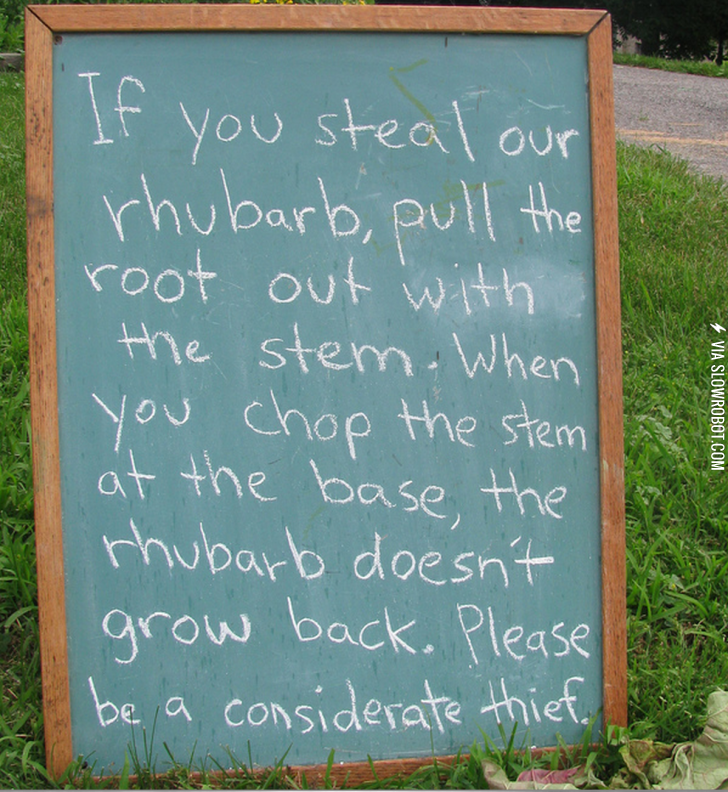 If you steal our
rhubarb, pull the
root out with
the stem. When
you chop the stem
at the base, the
rhubarb doesn't
grow back. Please
be a considerate thief.
VIA SLOWROBOT.COM